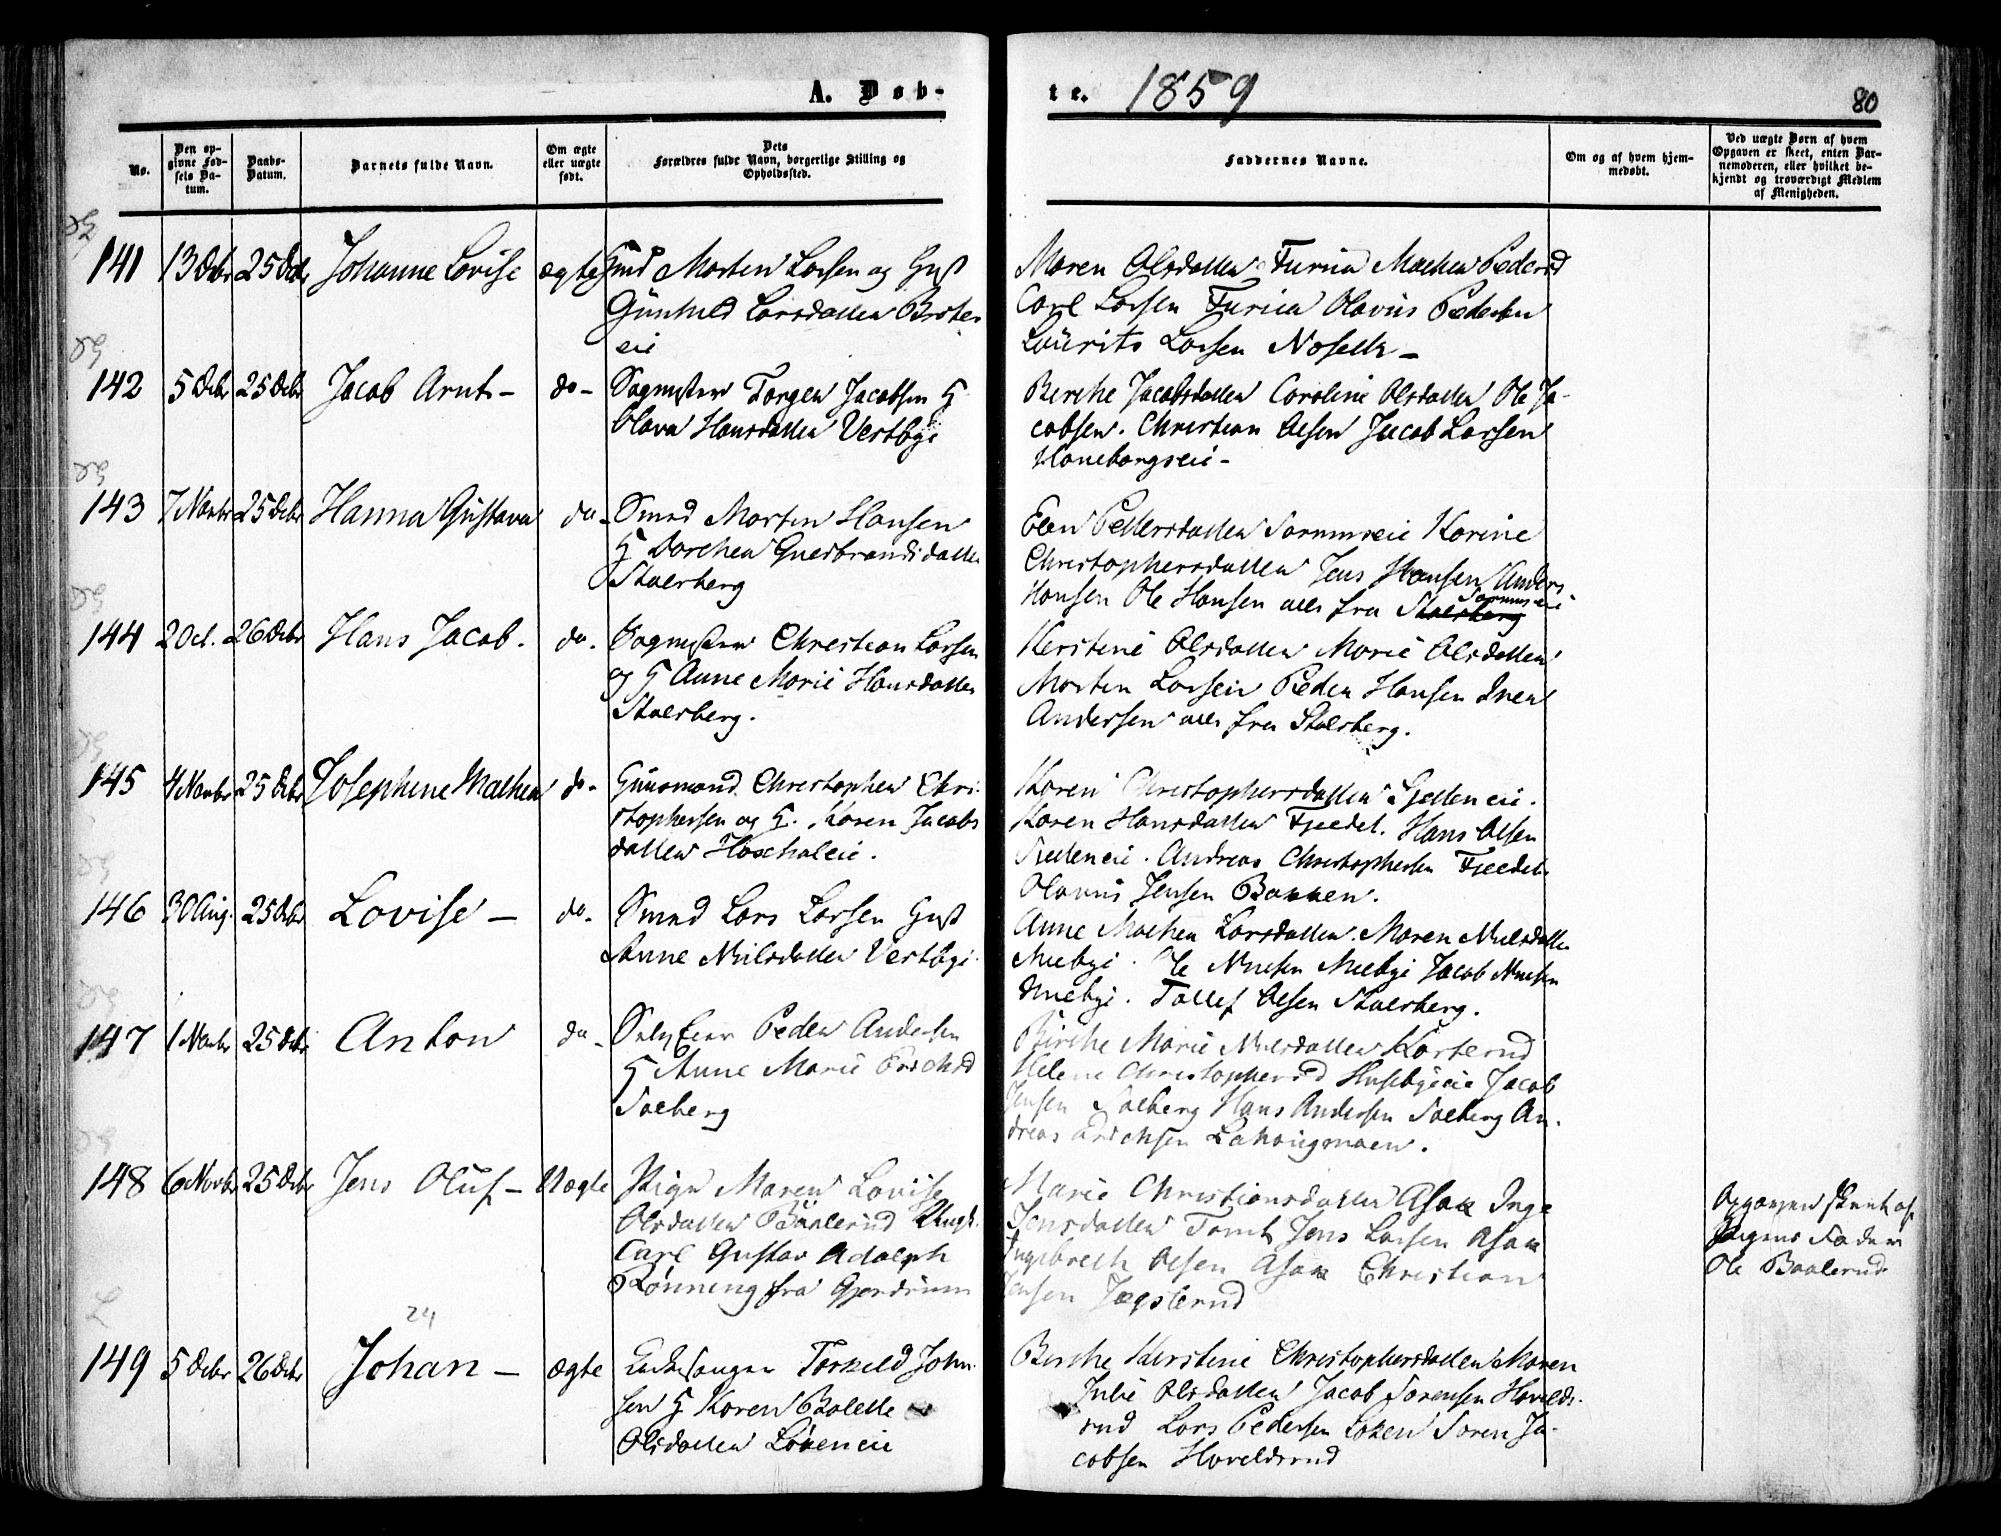 A. Døb-
te. 1859
80
No.
Den op-
givne Fød-
sels Da-
tum.
Daabs-
Datum.
Barnets fulde Navn.
Om ægte
eller uægte
født.
Dets
Forældres fulde Navn, borgerlige Stilling og
Opholdssted.
Faddernes Navne.
Om og af hvem hjem-
medøbt.
Ved uægte Børn af hvem
Opgaven er skeet, enten Bar-
nemoderen, eller hvilket be-
kjendt og troværdigt Medlem
af Menigheden.
141 13 Octbr 25 Decbr Johanne Lovise ægte Smd Morten Larsen og Gust
Gunhild Larsdatter Braten
eie
Maren Olsdatter Furua Mathea Pedersd
Carl Larsen Furua Olavus Pedersen
Laurits Larsen Noseth -
142 5 Decbr 25 Decbr Jacob Arnt - do - Sagmester Torger Jacobsen G
Olava Hansdatter Vestbye
Berthe Jacobsdatter Caroline Olsdatter Ole Ja-
cobsen. Christian Olsen Jacob Larsen
Haneborgseie -
143 7 Novbr 25 Decbr Hanna Gustava do - Smed Morten Hansen
G Dorthea Gulbrandsdatter
Stalsberg
Elen Pettersdatter Karine
Christophersdatter Jens Hansen Anders
Hansen Ole Hansen alle fra Stalsberg
144 2 Oct. 26 Decbr Hans Jacob. do. Sagmester Christian Larsen
og G Anne Marie Hansdatter
Stalsberg.
Kerstine Olsdatter Marie Olsdatter
Morten Larsen Peder Hansen Iver
Andersen alle fra Stalsberg.
145 4 Novbr 25 Decbr Josephine Mathea do - Gaardmand Christopher Chri-
stophersen og G. Karen Jacobs
datter
Karen Christophersdatter
Karen Hansdatter Fjeldet. Hans Olsen
Andreas Christophersen Fjeldet
Olavus Jensen Bakken.
146 30 Aug. 25 Decbr Lovise - do - Smed Lars Larsen Gust
Anne Nielsdatter Vestbye
Anne Mathea Larsdatter. Maren Nielsdatter
Nielsen Jacob Nielsen
Tollef Olsen Stalsberg.
147 1 Novbr 25 Decbr Anton do - Selveier Peder Andersen
G Anne Marie Erichsd
Solberg
Birthe Marie Nielsdatter Karterud
Helene Christophersd Husebyeie Jacob
Jensen Solberg Hans Andersen Solberg An-
dreas Erichsen
148 6 Novbr 25 Decbr Jens Oluf - Uægte Pige Maren Lovise
Olsdatter Baalerud Ungk.
Carl Gustav Adolph
Rønning fra Gjerdrum
Marie Christiansdatter Asak Inge
Jensdatter Tomt Jens Larsen Asak
Ingebreth Olsen Asak Christian
Jensen
Opgaven skeet af
Pigens Fader
Ole Baalerud
24
149 5 Decbr 26 Decbr Johan - ægte Kirkesanger Torkeld John-
sen G Karen Bolette
Olsdatter Løkeneie
Berthe Kerstine Christophersdatter Maren
Julie Olsdatter Jacob Sørensen Havelds-
rud Lars Pedersen Løken Søren Ja-
cobsen Haveldsrud